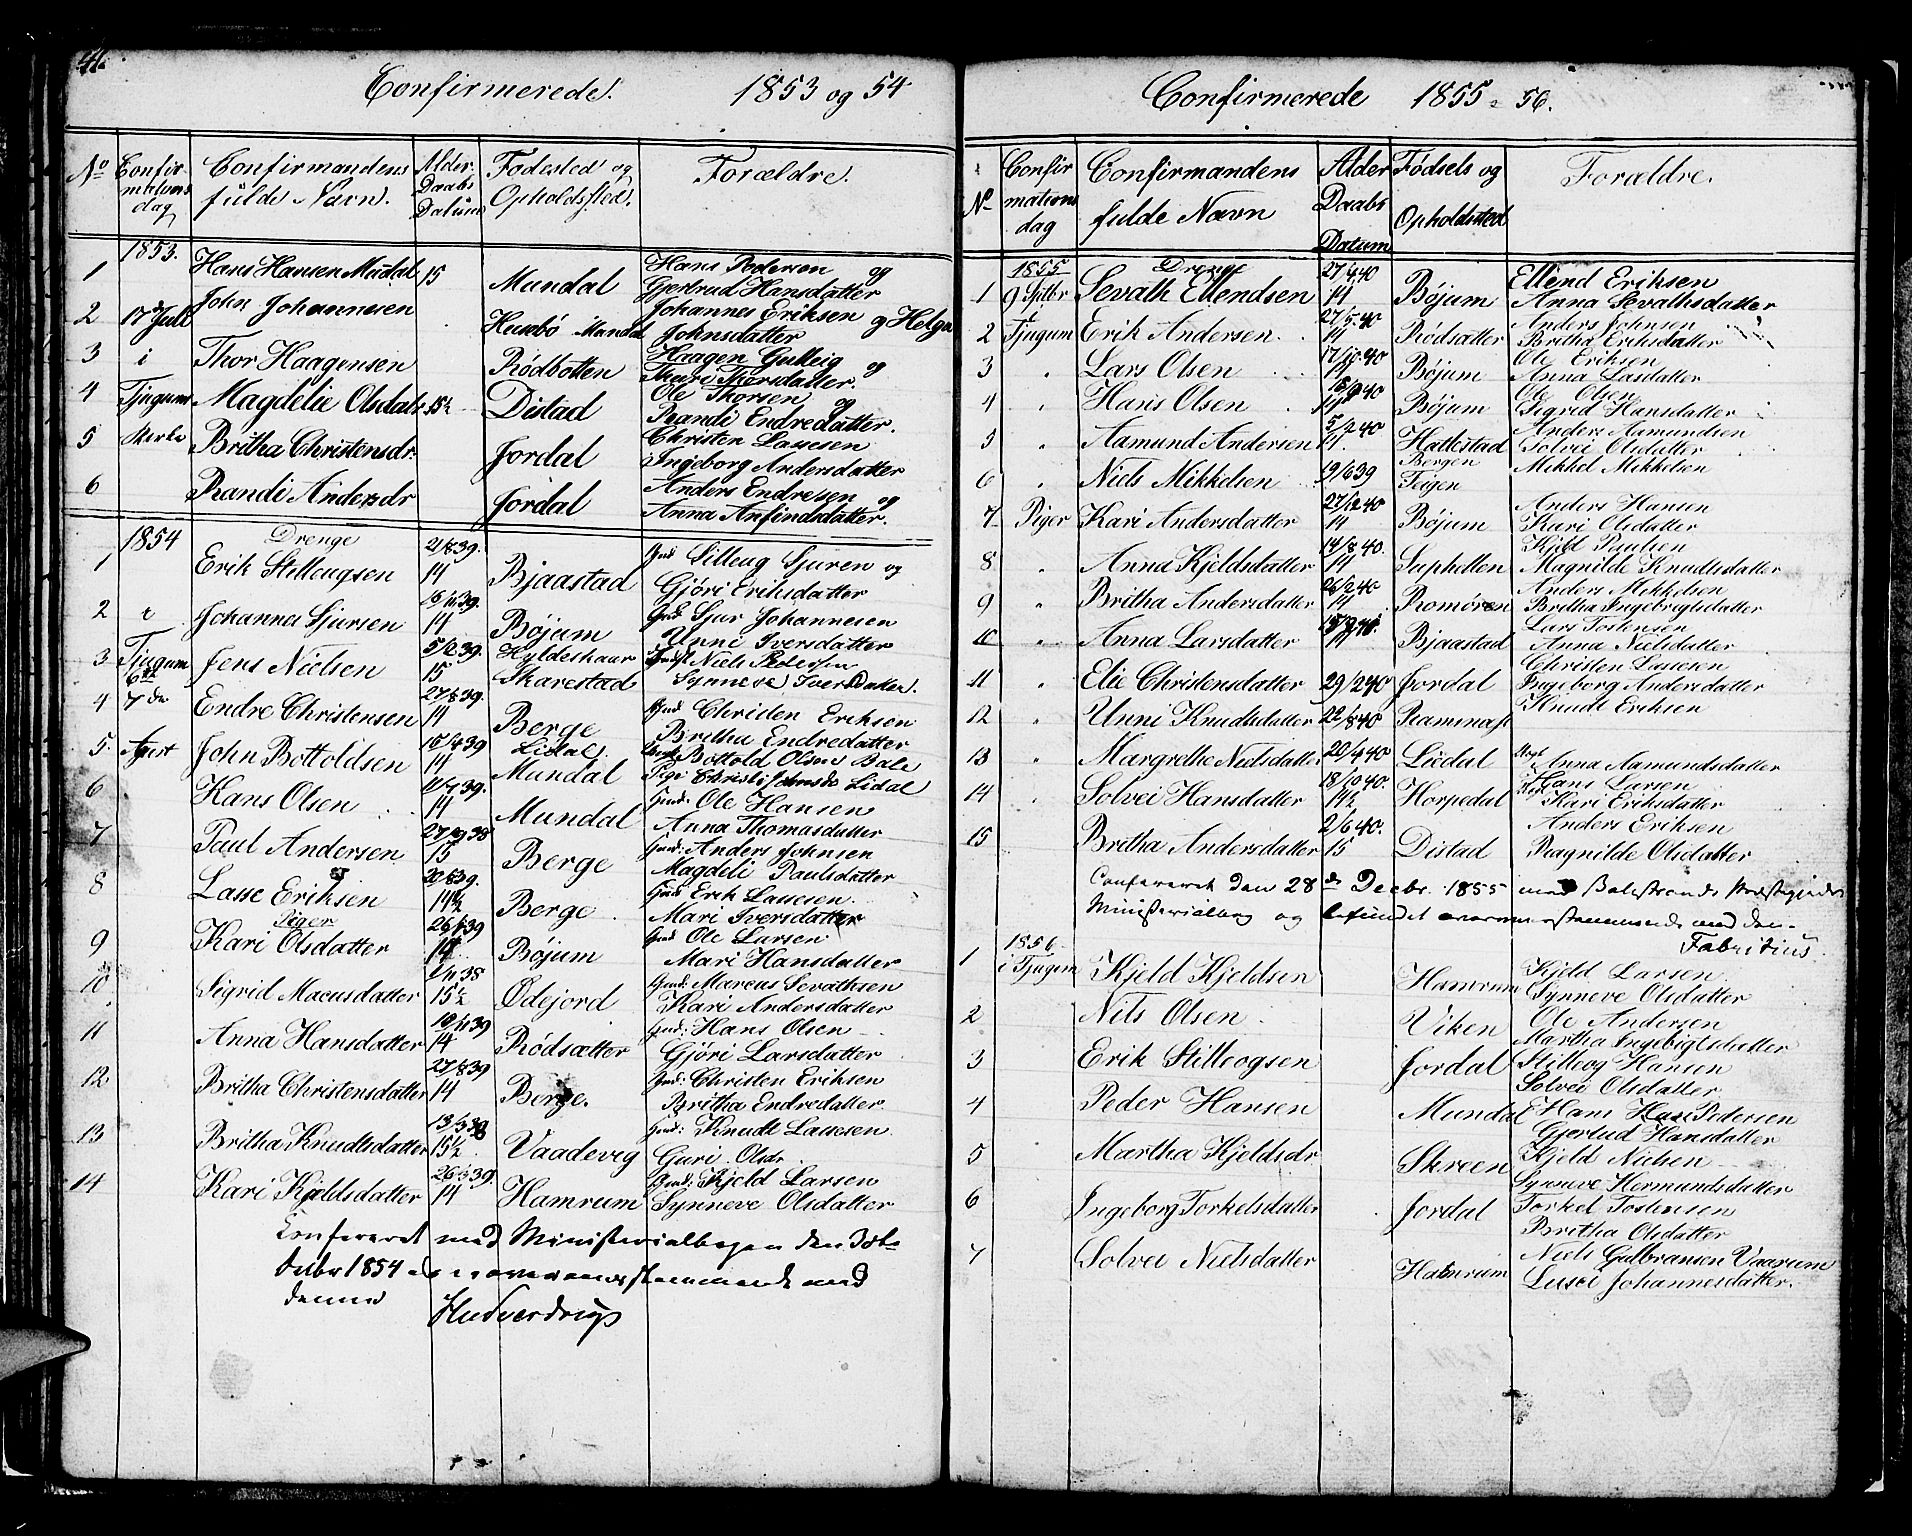 41.
Confirmerede. 1853 og 54
No Confirmations dag Confirmandens fulde Navn. Alder Daabs Datum Fødested og Opholdssted. Forældre.
1853.
1 Hans Hansen Mundal 15 Mundal Hans Pedersen og
Gjertrud Hansdatter
2 17 Juli John Johannesen Husebø Mundal Johannes Eriksen og Helga
Johnsdatter
3 i Thor Haagensen Rødbotten Haagen Gulleig og
Kari Thorsdatter.
4 Tjugum Magdelie Olsdatr 15½ Distad Ole Thorsen og
Randi Endredatter.
5 Kirke Britha Christensdr. Jordal Christen Lassesen
Ingeborg Andersdatter
6 Randi Andersdr Jordal Anders Endresen og
Anna Anfindsdatter.
1854 Drenge
1 Erik Stillougsen 21/8 39. 14 Bjaastad Gmd Silleug Sjuren og
Gjöri Eriksdatter
2 i Johannes Sjursen 14 Bøjum Gmd Sjur Johannesen
Unni Iversdatter
3 Tjugum Jens Nielsen 5/2 39. 15 Hyldeshaar Skarestad Niels Pedersen
Synneve Iversdatter.
4 7de Endre Christensen 27/8 39. 14 Berge Gmd Christen Eriksen
Britha Endredatter
5 John Bottoldsen 16/4 39 14 Lidal Mundal Bottold Olsen Bale
Pige Christi Johnsdr Lidal
6 Hans Olsen 14 Mundal Gmd: Ole Hansen
Anna Thomasdatter
7 Paul Andersen 15 Berge Gmd: Anders Johnsen
Magdeli Paulsdatter
8 Lasse Eriksen 14½ Berge Gmd: Erik Lassesen
Mari Iversdatter
Piger
9 Kari Olsdatter 14 Bøjum Gmd Ole Larsen
Mari Hansdatter
10 Sigrid Macusdatter 15½ Ødejord Gmd: Marcus Sevathsen
Kari Andersdatter
11 Anna Hansdatter 14 Rødsætter Gmd: Hans Olsen
Gjöri Larsdatter
12 Britha Christensdatter 27/8 39 14 Berge. Gmd: Christen Eriksen
Britha Endredatter
13 Britha Knudtsdatter 15½ Vaadevig Gmd: Knudt Lassesen
Guri Olsdr.
14 Kari Kjeldsdatter 14 Hamrum Gmd: Kjeld Larsen
Synneve Olsdatter
Confereret med Ministerialbogen den 3 Octo-
ber 1854 og overeensstemmende med
denne
Confirmerede 1855 - 56.
No Confirmations dag Confirmandens fulde Navn Alder Daabs Datum Fødsels og Opholdssted Forældre.
1855 Drenge
1 9 Sptbr Sevath Ellendsen 27/4 40 14 Bøjum Ellend Eriksen
Anna Sevathsdatter
2 Tjugum Erik Andersen 27/5 40 14 Rødsætter Anders Johnsen
Britha Eriksdatter
3 " Lars Olsen 17/10 40 14 Bøjum Ole Eriksen
Anna Lasdatter
4 " Hans Olsen 14 Bøjum Ole Olsen
Sigrid Hansdatter
5 " Aamund Andersen 5/2 40 14. Hatlestad Anders Aamundsen
Solvei Olsdatter
6 " Niels Mikkelsen 19/6 39 Bergen Feigen Mikkel Mikkelsen
7 Piger Kari Andersdatter 27/12 40 14 Bøjum Anders Hansen
Kari Olsdatter
8 " Anna Kjeldsdatter 14/8 40. 14 Suphellen Kjeld Paulsen
Magnilde Knudtsdatter
9 " Britha Andersdatter 26/2 40 14 Romøren Anders Mikkelsen
Britha Ingebrigtsdatter
10 " Anna Larsdatter 14 Bjaastad Lars Tostensen
Anna Nielsdatter
11 " Elie Christensdatter 29/2 40 Jordal Christen Lassesen
Ingeborg Andersdatter
12 " Unni Knudtsdatter 22/8 40 Knudt Eriksen
13 " Margrethe Nielsdatter 20/4 40 Liedal Anna Aamundsdatter
14 " Solvei Hansdatter 14½ Horpedal Hans Larsen
Kari Eriksdatter
15 Britha Andersdatter 2/6 40. 15 Distad Anders Eriksen
Ragnilde Olsdatter
Confereret den 28de Decbr. 1855 med Balestrands Præstegjelds
Ministerialbog og befundet overeensstemmende med den.
Fabritius.
1856
1 i Tjugum Kjeld Kjeldsen Hamrum Kjeld Larsen
Synneve Olsdatter
2 Nils Olsen Viken Ole Andersen
Martha Ingebigtsdatter
3 Erik Stilleogsen Jordal Stilleog Hansen
Solvei Olsdatter
4 Peder Hansen Mundal Hans Pedersen
Gjertud Hansdatter
5 Martha Kjeldsdr Skreen Kjeld Nielsen
Synneve Hermundsdatter
6 Ingeborg Torkelsdatter Jordal Torkel Tostensen
Britha Olsdatter
7 Solvei Nielsdatter Hamrum Niels Gulbransen Vaarum
Lusei Johannesdatter.